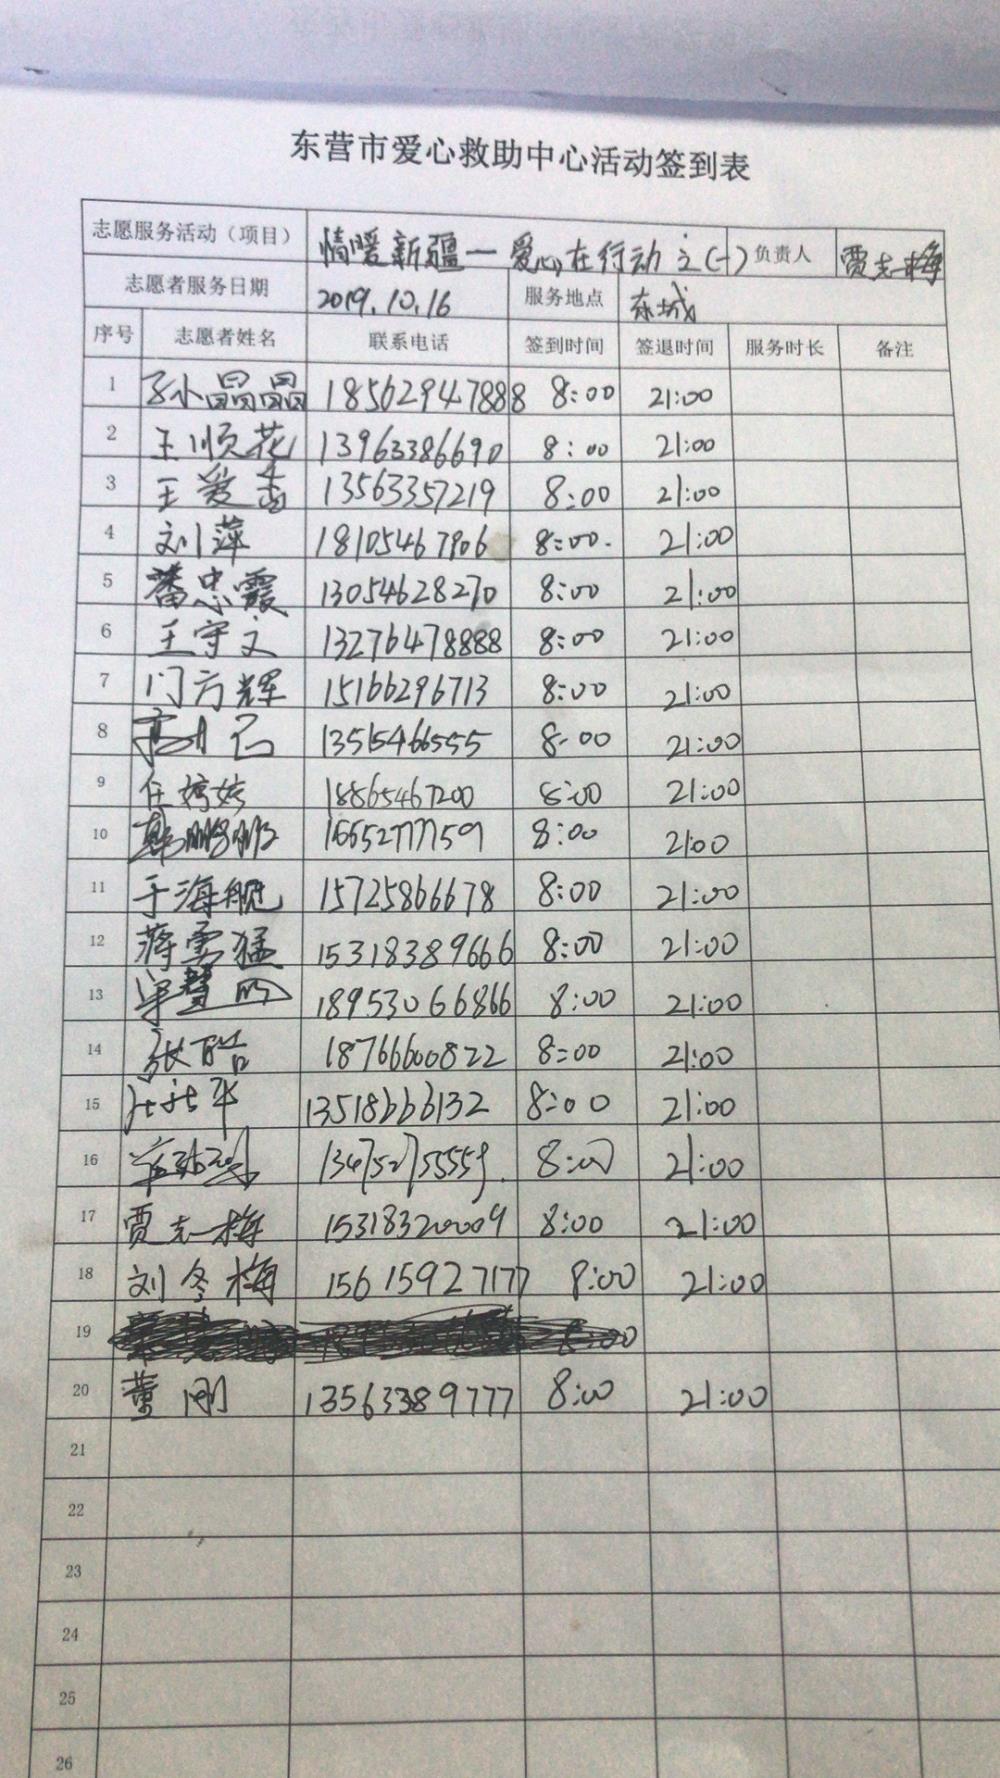 东营市爱心救助中心活动签到表
志愿服务活动（项目） 情暖新疆一爱心在行动之(一) 负责人 贾志梅
志愿者服务日期 2019.10.16 服务地点 东城
序号 志愿者姓名 联系电话 签到时间 签退时间 服务时长 备注
1 孙晶晶 18562947888 8:00 21:00
2 王顺花 13963386690 8:00 21:00
3 王爱香 13563357219 8:00 21:00
4 刘萍 18105467906 8:00. 21:00
5 忠霞 13054628270 8:00 21:00
6 王守文 13276478888 8:00 21:00
7 门方辉 15166296713 8:00 21:00
8 13515466555 8:00 21:00
9 任婷婷 18865467200 8:00 21:00
10 16652777759 8:00 21:00
11 于海艇 15725866678 8:00 21:00
12 蒋勇猛 15318389666 8:00 21:00
13 18953066866 8:00 21:00
14 张 18766600822 8:00 21:00
15 13518666132 8:00 21:00
16 8:00 21:00
17 贾志梅 15318320009 8:00 21:00
18 刘冬梅 15615927177 8:00 21:00
19 8:00
20 董刚 13563389777 8:00 21:00
21
22
23
24
25
26